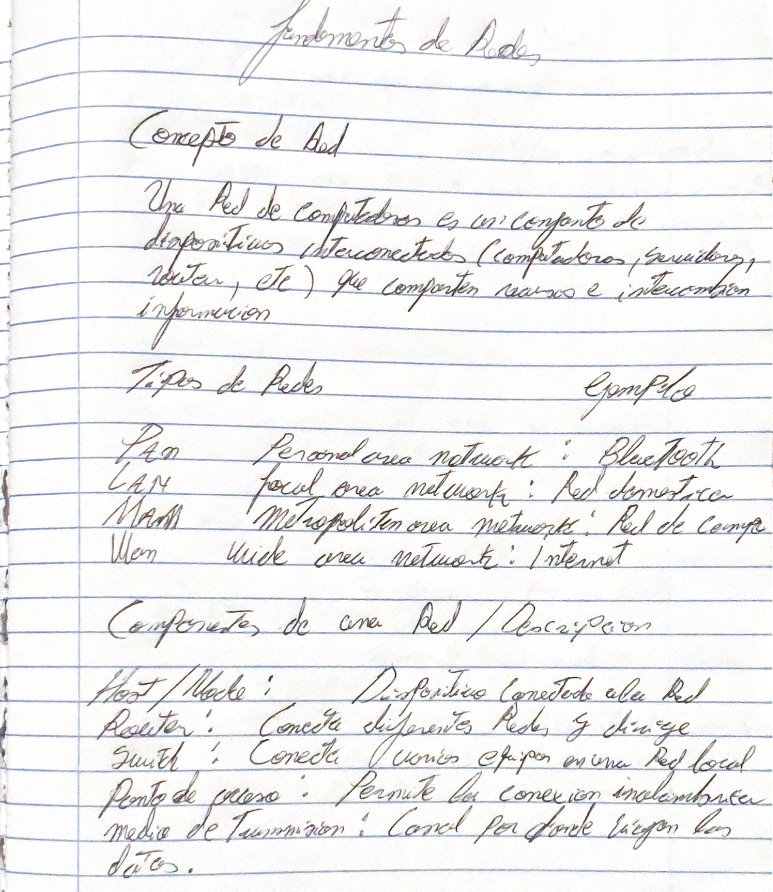 Fundamentos de Redes
Concepto de Red
Una Red de computadoras es un conjunto de
dispositivos interconectados (computadoras, servidores,
router, etc) que comparten recursos e intercambian
informacion
Tipos de Redes Ejemplo
PAN Personal area network : Bluetooth
LAN local area network : Red domestica
MAN Metropolitan area network : Red de campu
Wan wide area network : Internet
Componentes de una Red / Descripcion
Host / Node : Dispositivo conectado a la Red
Router : Conecta diferentes Redes y dirige
Switch : Conecta varios equipos en una Red local
Punto de acceso : Permite la conexion inalambrica
medio de Transmision : Canal por donde viajan los
datos.